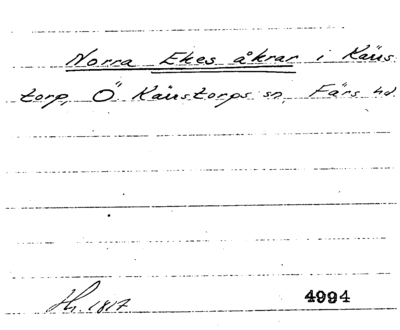 Norra Ekes åkrar i Käus
torp, Ö Käustorps sn, Färs hd.
Hr. 1817
4994